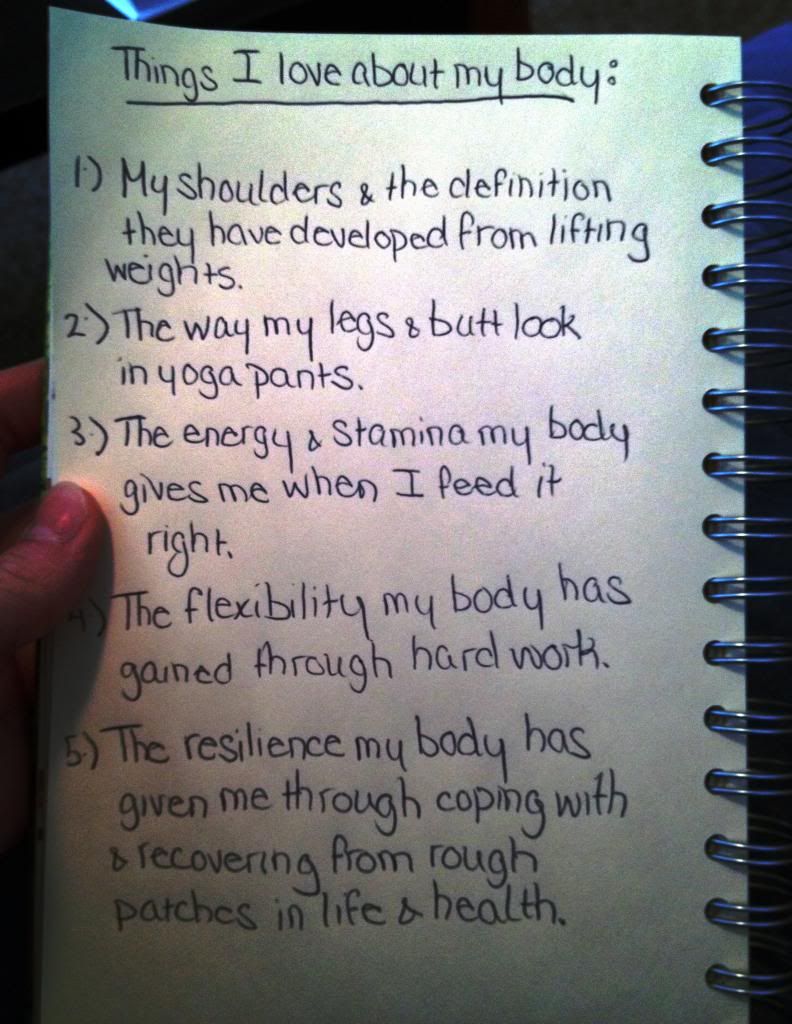 Things I love about my body:
1.) My shoulders & the definition
they have developed from lifting
weights.
2.) The way my legs & butt look
in yoga pants.
3.) The energy & stamina my body
gives me when I feed it
right.
4.) The flexibility my body has
gained through hard work.
5.) The resilience my body has
given me through coping with
& recovering from rough
patches in life & health.